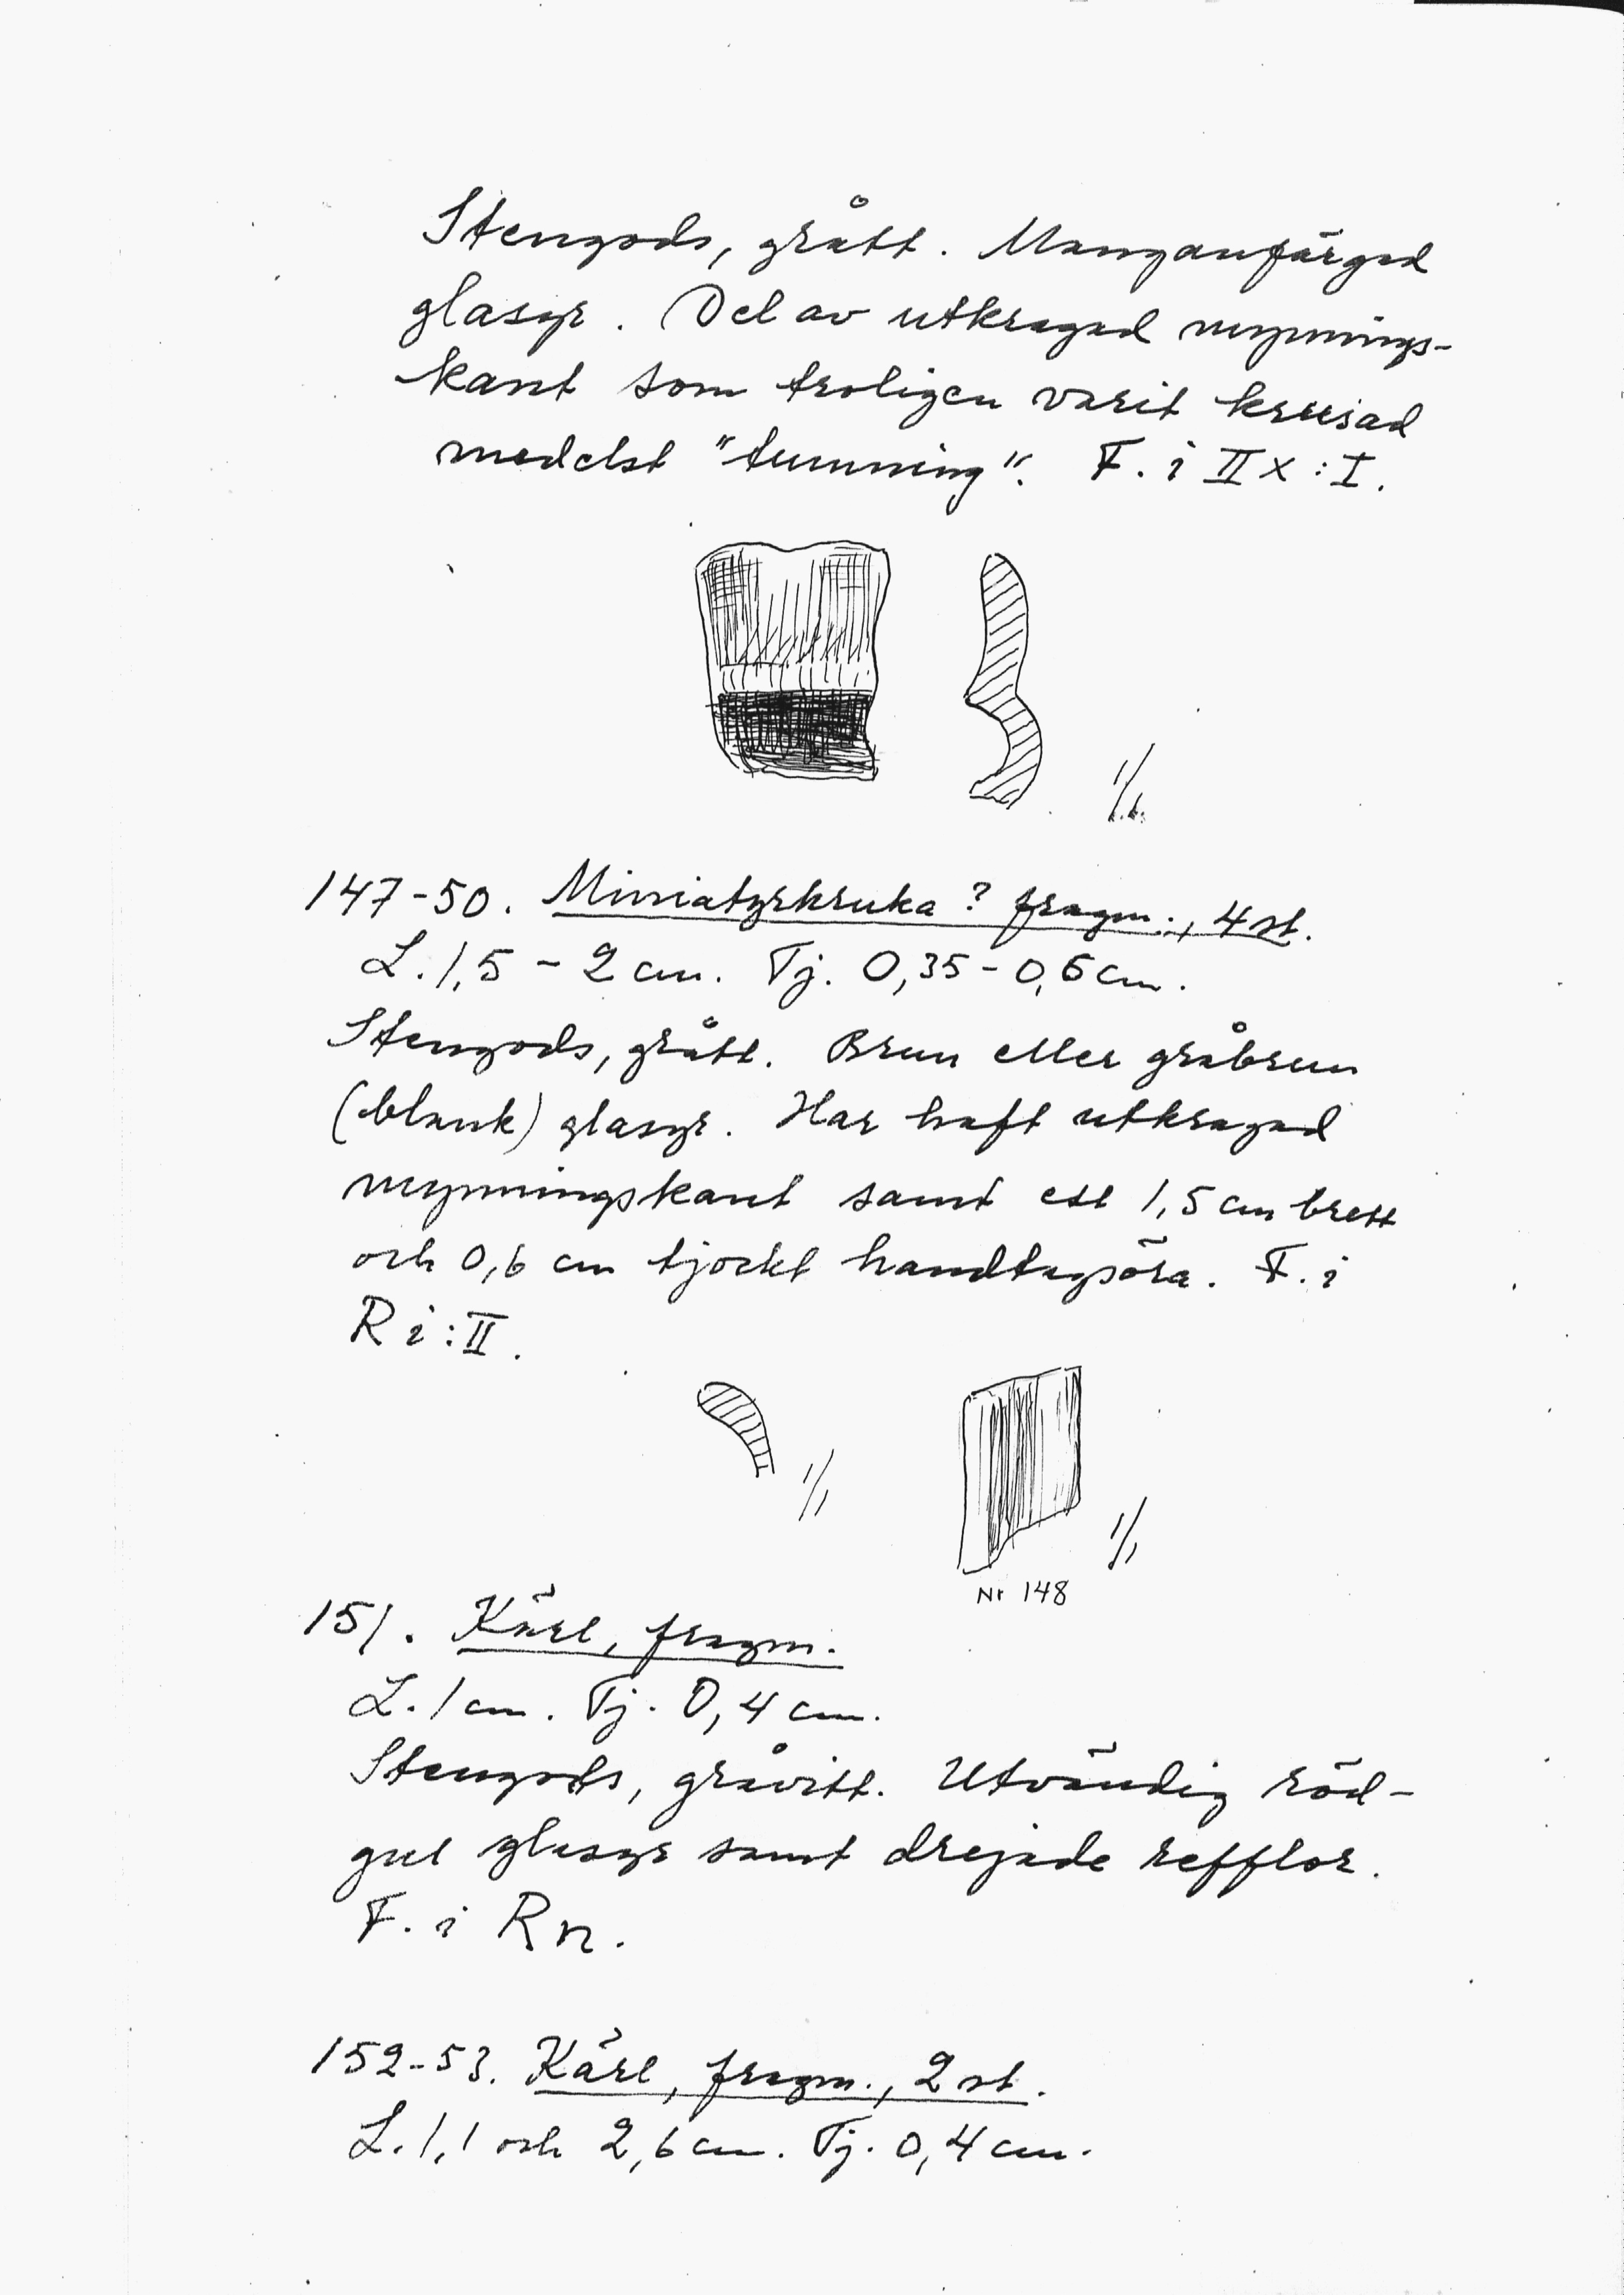 Stengods, grått. Manganfärgad
glasyr. Del av utkragad mynnings-
kant som troligen varit krusad
medelst "tumning". F. i II X : I.
1/1
147-50. Miniatyrkruka? fragm., 4 st.
L. 1,5 - 2 cm. Tj. 0,35 - 0,6 cm.
Stengods, grått. Brun eller gråbrun
(blank) glasyr. Har haft utkragad
mynningskant samt ett 1,5 cm brett
och 0,6 cm tjockt handtagsöra. F. i
R i : II.
1/1
1/1
Nr 148
151. Kärl, fragm.
L. 1 cm. Tj. 0,4 cm.
Stengods, gråvitt. Utvändig röd-
gul glasyr samt drejade refflor.
F. i Rn.
152-53. Kärl, fragm., 2 st.
L. 1,1 och 2,6 cm. Tj. 0,4 cm.